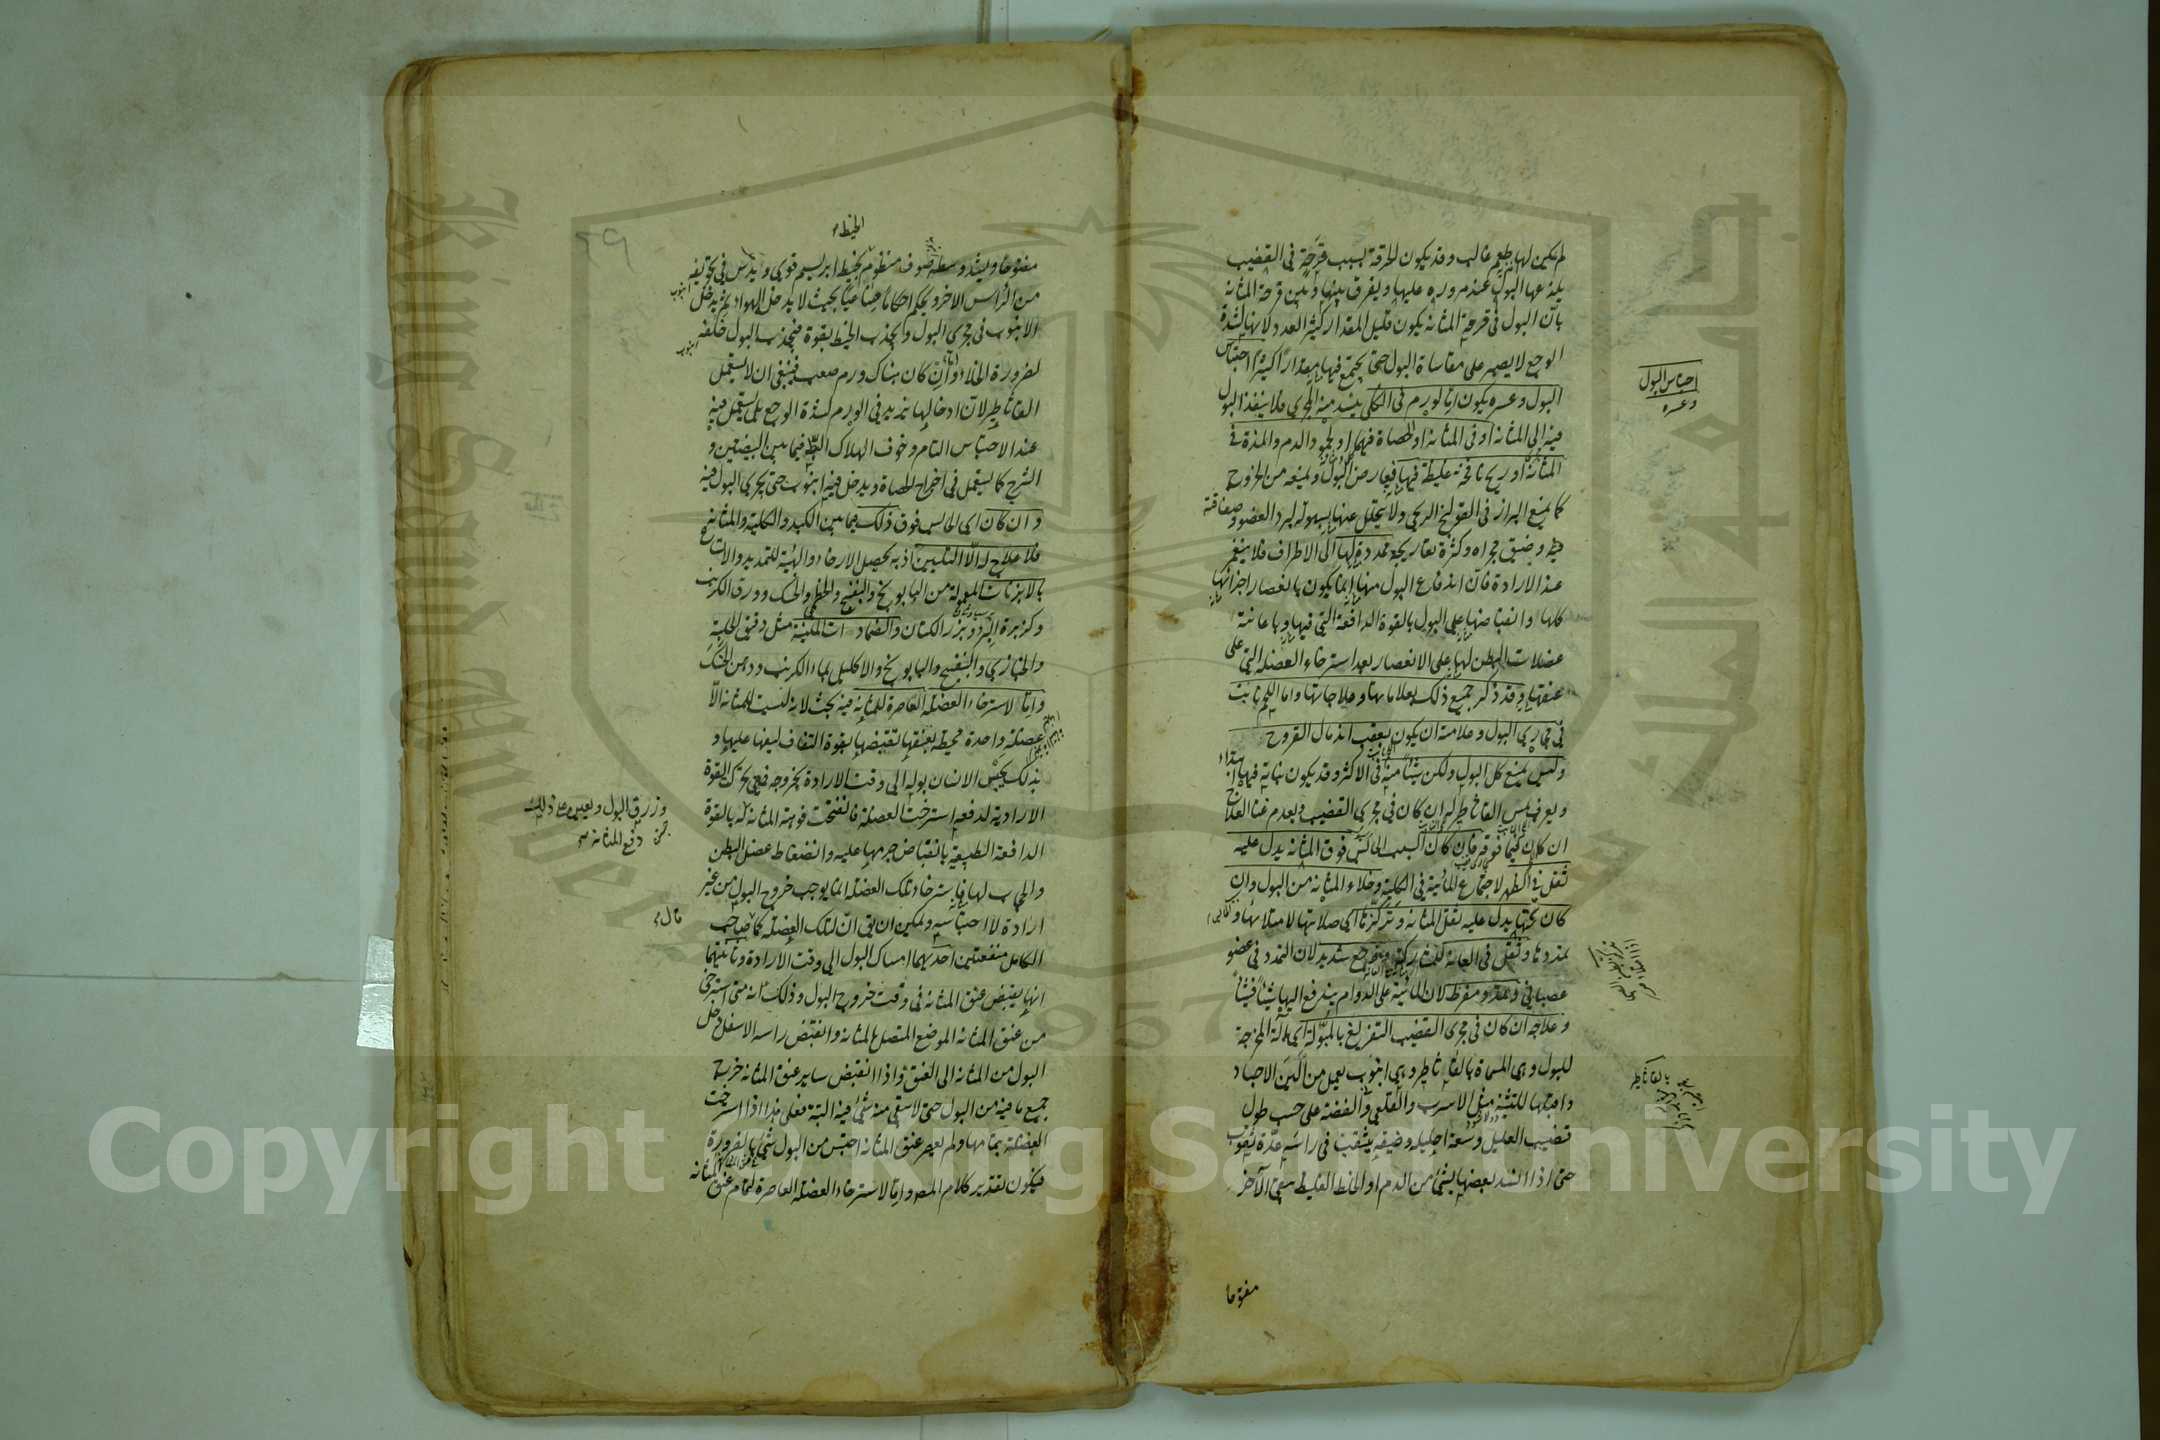 لم يكن لها طعم غالب وقد يكون الحرقة بسبب قرحة في القضيب
يلذعها البول عند مروره عليها ويفرق بينها وبين قرحة المثانة
بان البول في قرحة المثانة يكون قليل المقدار كثير العدد لانها لشدة
الوجع لا يصبر على مقاساة البول حتى يجتمع فيها مقدارا كثيرا احتباس
البول وعسره يكون اما لورم في الكلى ينسد منه المجرى فلا ينفذ البول
فيه الى المثانة او في المثانة او الحصاة فيهما او لجمود الدم والمدة في
المثانة او ريح نافخة غليظة فيها فيعارض البول ويمنعه من الخروج
كما يمنع البراز في القولنج الريحي ولا يتحلل عنها بسهولة لبرد العضو وصفاقته
فيه وضيق مجراه وكثرة تعاريجه ممددة لها الى الاطراف فلا ينعصر
عند الارادة فان اندفاع البول منها انما يكون بانعصار اجزائها
كلها وانقباضها على البول بالقوة الدافعة التي فيها وباعانة
عضلات البطن لها على الانعصار بعد استرخاء العضلة التي على
عنقها وقد ذكر جميع ذلك بعلاماتها وعلاجاتها واما للحم نابت
في مجاري البول وعلامته ان يكون بعقب اندمال القروح
وليس يمنع كل البول ولكن شيئا منه في الاكثر وقد يكون نباته فيها ابتداء
ويعرف بلمس القاثاطير له ان كان في مجرى القضيب وبعدم غناء العلاج
ان كان فيما فوقه فان كان السبب الحابس فوق المثانة يدل عليه
ثقل في الظهر لاجتماع المائية في الكلية وخلاء المثانة من البول وان
كان تحتها يدل عليه ثقل المثانة وتركزها اي صلابتها لامتلائها و
تمددها وثقل في العانة للمشاركة ووجع شديد لان التمدد في عضو
عصباني وتمدد مفرط لان المائية على الدوام يندفع اليها شيئا فشيئا
وعلاجه ان كان في مجرى القضيب التفريغ بالمبولة اي بالآلة المخرجة
للبول وهي المسماة بالقاثاطير وهي انبوب يعمل من الين الاجساد
واقبلها للتثنية مثل الاسرب والقلعي والفضة على حسب طول
قضيب العليل وسعة احليله وضيقه يثقب في راسه عدة ثقوب
حتى اذا انسد بعضها بشئ من الدم او الخلط الغليظ بقي الآخر
مفتوحا
احتباس البول
وعسره
الخيط
مفتوحا ويشد وسطه صوف منظوم بخيط ابريسم قوي ويدس في تجويفه
من الراس الاخر ويحكم احكاما بحيث لا يدخل الهواء ثم يدخل
الانبوب في مجرى البول ويجذب الخيط بقوة فينجذب البول خلفه
لضرورة الخلاء وان كان هناك ورم صعب فينبغي ان لا يستعمل
القاثاطير لان ادخالها يزيد في الورم لشدة الوجع بل يستعمل فيه
عند الاحتباس التام وخوف الهلاك البط فيما بين البيضتين و
الشرج كما يستعمل في اخراج الحصاة ويدخل فيه انبوب حتى يجري البول فيه
وان كان اي الحابس فوق ذلك فيما بين الكبد والكلية والمثانة
فلا علاج له الا التليين اذ به يحصل الارخاء والتهيئة للتمديد والاتساع
بالابزنات المعمولة من البابونج والبنفسج والخطمي والحسك وورق الكرنب
وكزبرة البئر وبزر الكتان والضمادات الملينة مثل دقيق الحلبة
والخبازي والبنفسج والبابونج والاكليل بماء الكرنب ودهن الحسك
واما لاسترخاء العضلة العاصرة للمثانة فيه بحث لانه ليست للمثانة الا
عضلة واحدة محيطة بعنقها تقبضها بقوة التفاف ليفها عليها و
بذلك يحبس الانسان بوله الى وقت الارادة بخروجه فمتى تحرك القوة
الارادية لدفعه استرخت العضلة فانفتحت فوهة المثانة له بالقوة
الدافعة الطبيعية بانقباض جرمها عليه وانضغاط عضل البطن
والحجاب لها فاسترخاء تلك العضلة انما يوجب خروج البول من غير
ارادة لا احتباسه ويمكن ان يقال ان لتلك العضلة كما صاحب
الكامل منفعتين احديهما امساك البول الى وقت الارادة وثانيتهما
انها يقبض عنق المثانة في وقت خروج البول وذلك انه متى استرخى
من عنق المثانة الموضع المتصل بالمثانة وانقبض راسه الاسفل دخل
البول من المثانة الى العنق واذا انقبض ساير عنق المثانة خرج
جميع ما فيه من البول حتى لا يبقى منه شئ فيه البتة فعلى هذا اذا استرخت
العضلة بتمامها ولم يعصر عنق المثانة احتبس من البول شئ بالضرورة
فيكون تقدير كلام المصنف واما لاسترخاء العضلة العاصرة لتمام عنق المثانة
وزرق البول ويعين على ذلك
دفع المثانة
قال